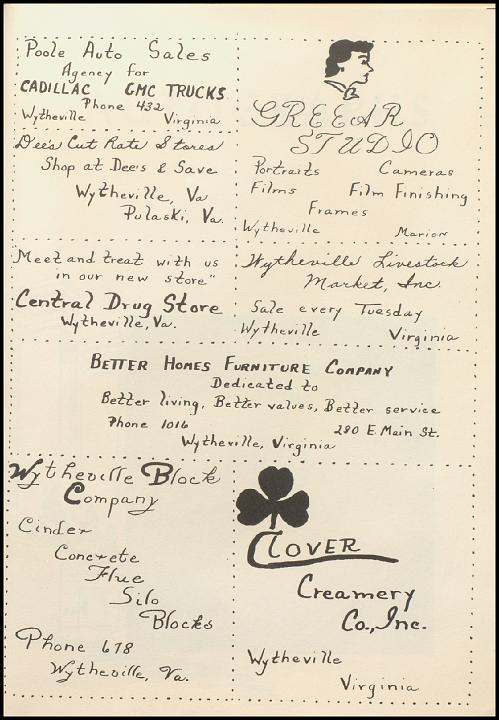 Poole Auto Sales
Agency for
CADILLAC GMC TRUCKS
Phone 432
Wytheville Virginia
Dee's Cut Rate Stores
Shop at Dee's & Save
Wytheville, Va
Pulaski, Va.
Meet and treat with us
in our new store"
Central Drug Store
Wytheville, Va.
GREEAR
STUDIO
Portraits Cameras
Films Film Finishing
Frames
Wytheville Marion
Wytheville Livestock
Market, Inc.
Sale every Tuesday
Wytheville Virginia
BETTER HOMES FURNITURE COMPANY
Dedicated to
Better living, Better values, Better service
Phone 1016 280 E. Main St.
Wytheville, Virginia
Wytheville Block
Company
Cinder
Concrete
Flue
Silo
Blocks
Phone 678
Wytheville, Va.
CLOVER
Creamery
Co., Inc.
Wytheville
Virginia